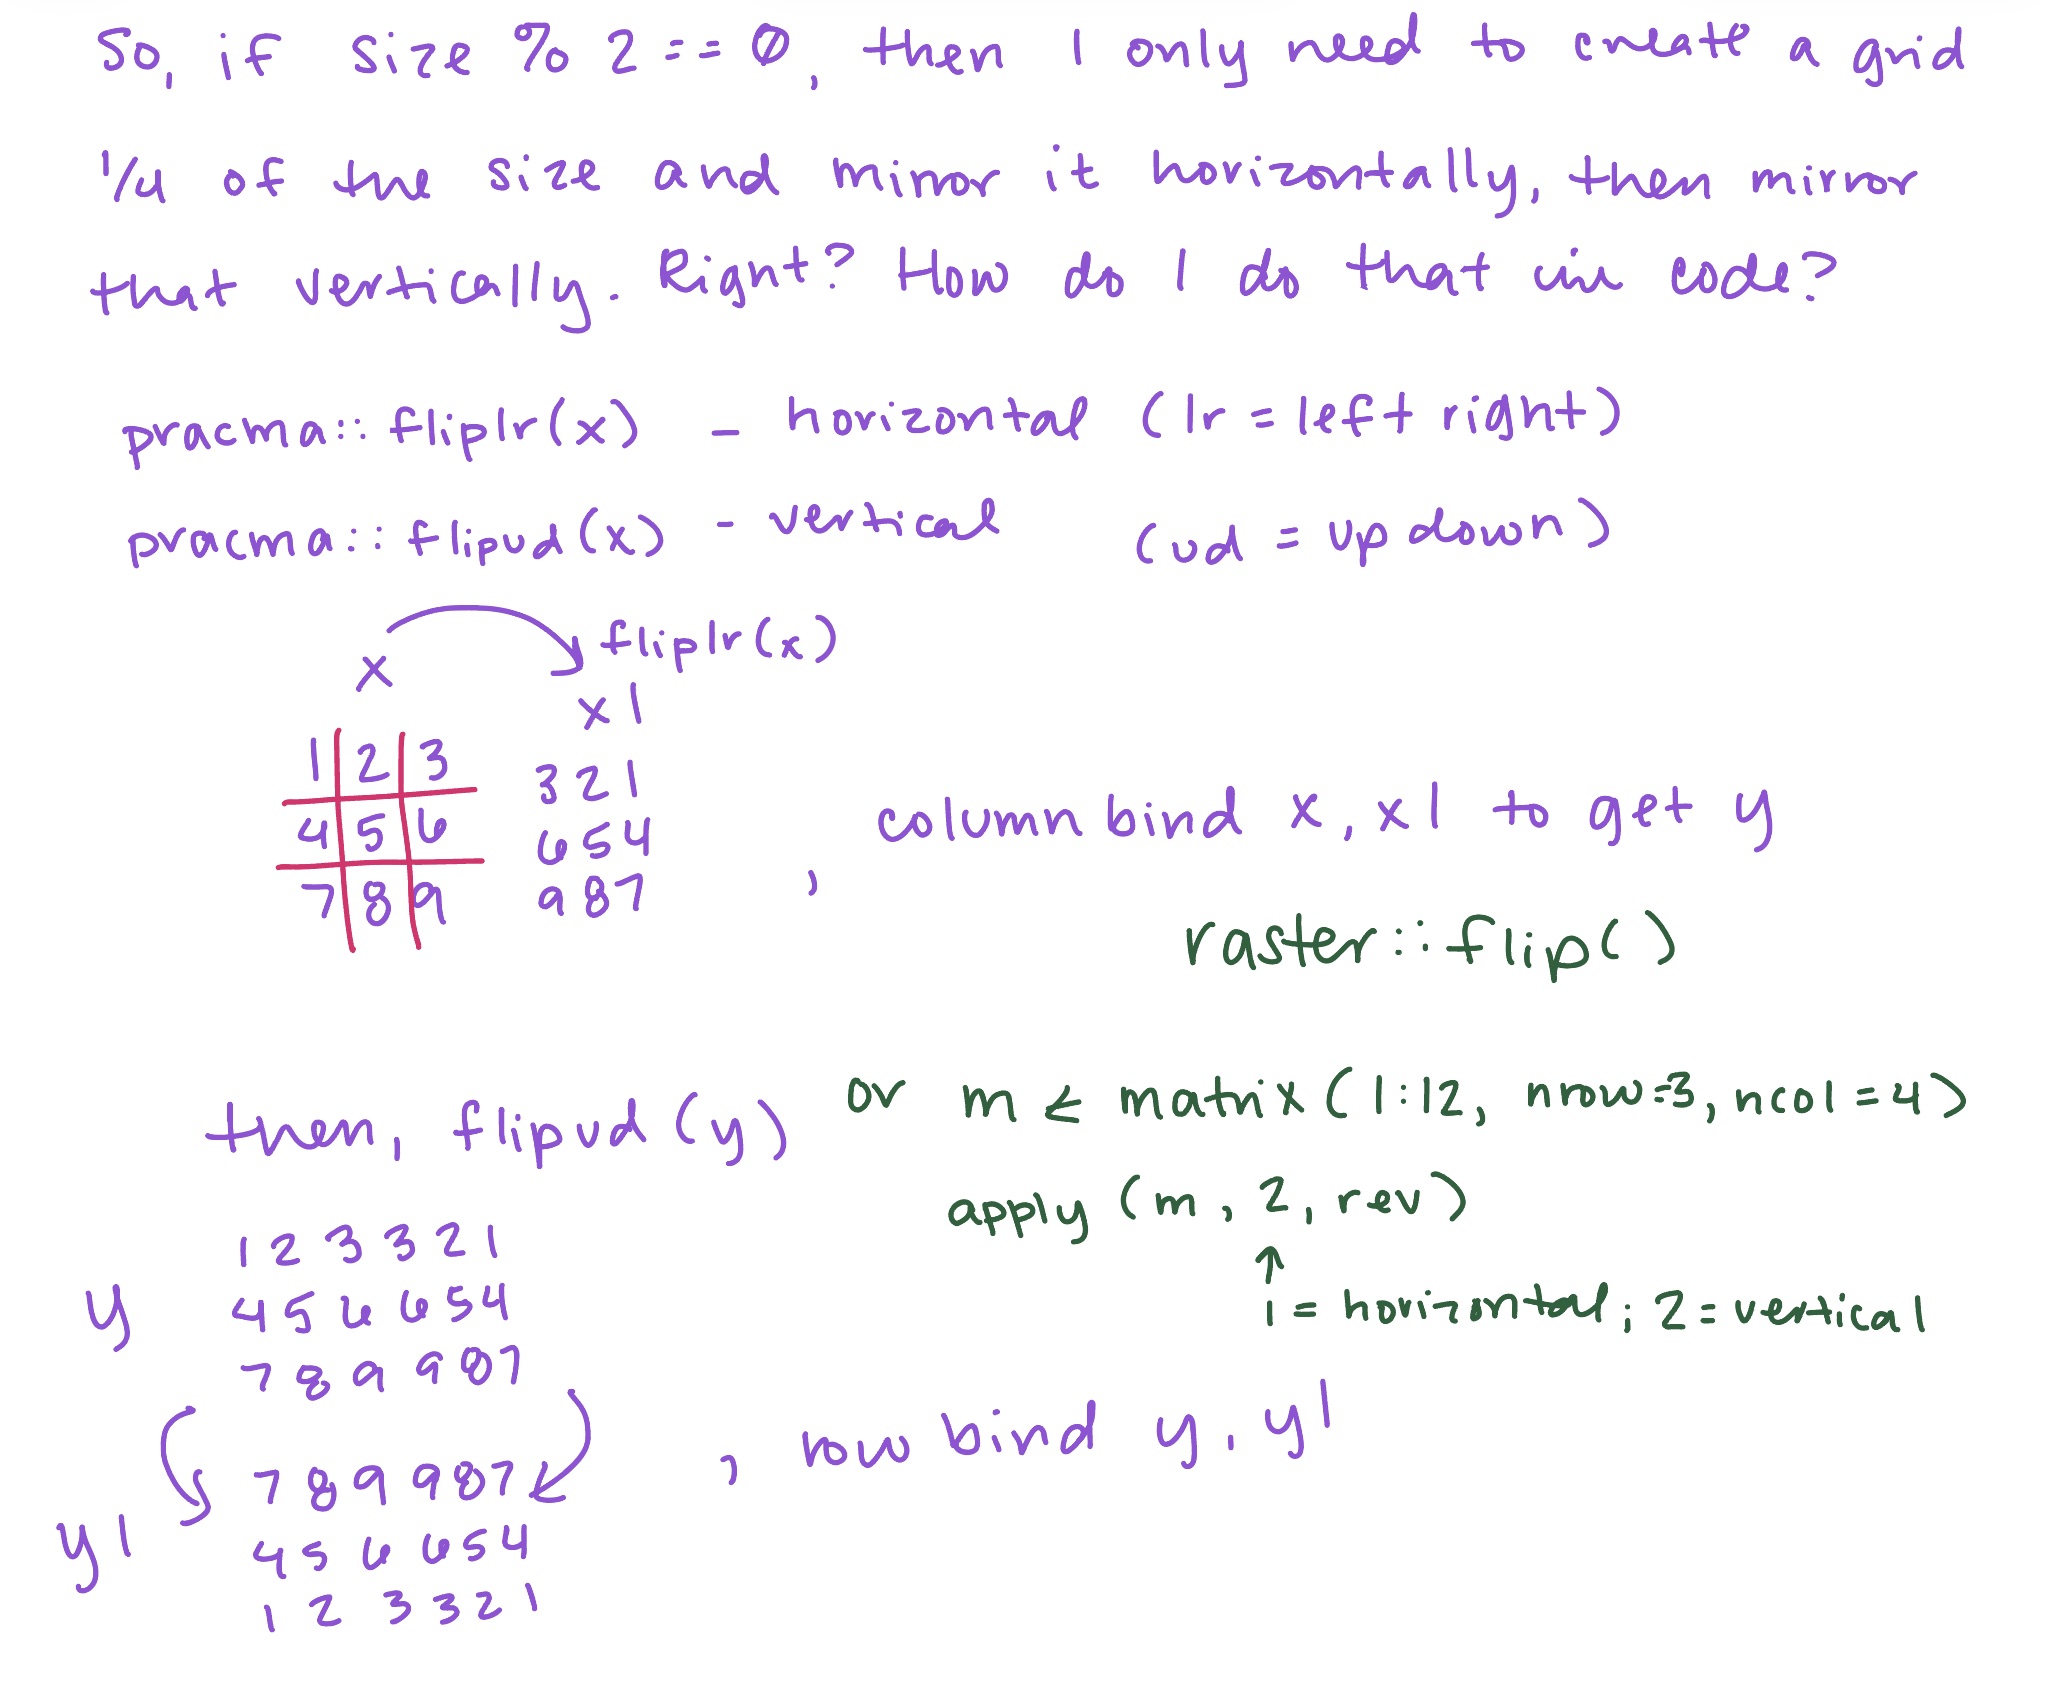 So, if size % 2 == 0, then I only need to create a grid
1/4 of the size and mirror it horizontally, then mirror
that vertically. Right? How do I do that in code?
pracma::fliplr(x) - horizontal (lr = left right)
pracma::flipud(x) - vertical (ud = up down)
x fliplr(x)
x1
1 2 3 3 2 1
4 5 6 6 5 4
7 8 9 9 8 7
, column bind x, x1 to get y
raster::flip()
then, flipud(y)
or m ← matrix(1:12, nrow=3, ncol=4)
apply(m, 2, rev)
↑
1 = horizontal; 2 = vertical
y
1 2 3 3 2 1
4 5 6 6 5 4
7 8 9 9 8 7
y1
7 8 9 9 8 7
4 5 6 6 5 4
1 2 3 3 2 1
, row bind y, y1